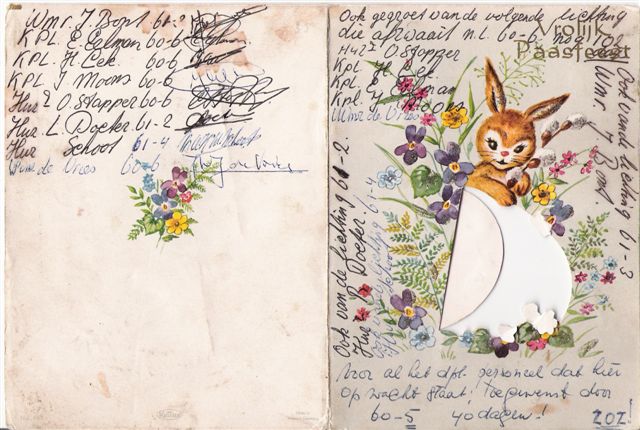 Wmr. J. Bont 61-2
KPL. E. Eelman 60-6
KPL. H. Cek 60-6
KPL. J. Moons 60-6
Huz I O. Stapper 60-6
Huz. L. Doeter 61-2
Huz School 61-4
Wmr. de Vries 60-6
Ook gegroet van de volgende lichting
die afzwaait n.l. 60-6
Vrolijk
Paasfeest
Huz I O Stapper
Kpl. H. Cek
Kpl. E. Eelman
Kpl. J. Moons
Wmr de Vries
Ook van de lichting 61-3
Wmr. J. Bont
Ook van de lichting 61-2
Huz. L. Doeter
Ook van de lichting 61-4
Huz. School
Voor al het dpl. personeel dat hier
op wacht staat: Toegewenst door
60-5 40 dagen!
ZOZ!